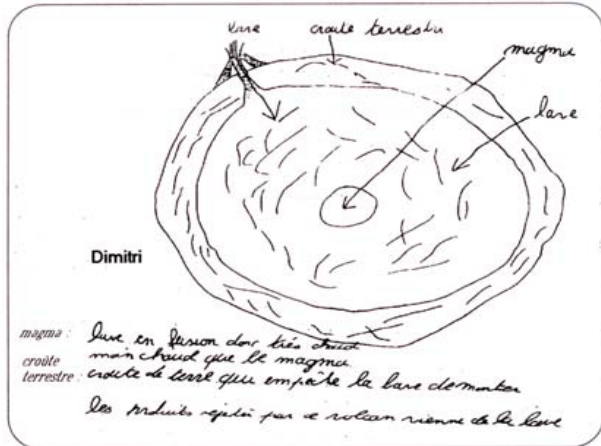 lave
croûte terrestre
magma
lave
Dimitri
magma : lave en fusion donc très chaud
main chaud que le magma
croûte
terrestre : croute de terre qui empête la lave de monter
les produits rejeté par ce volcan vienne de la lave